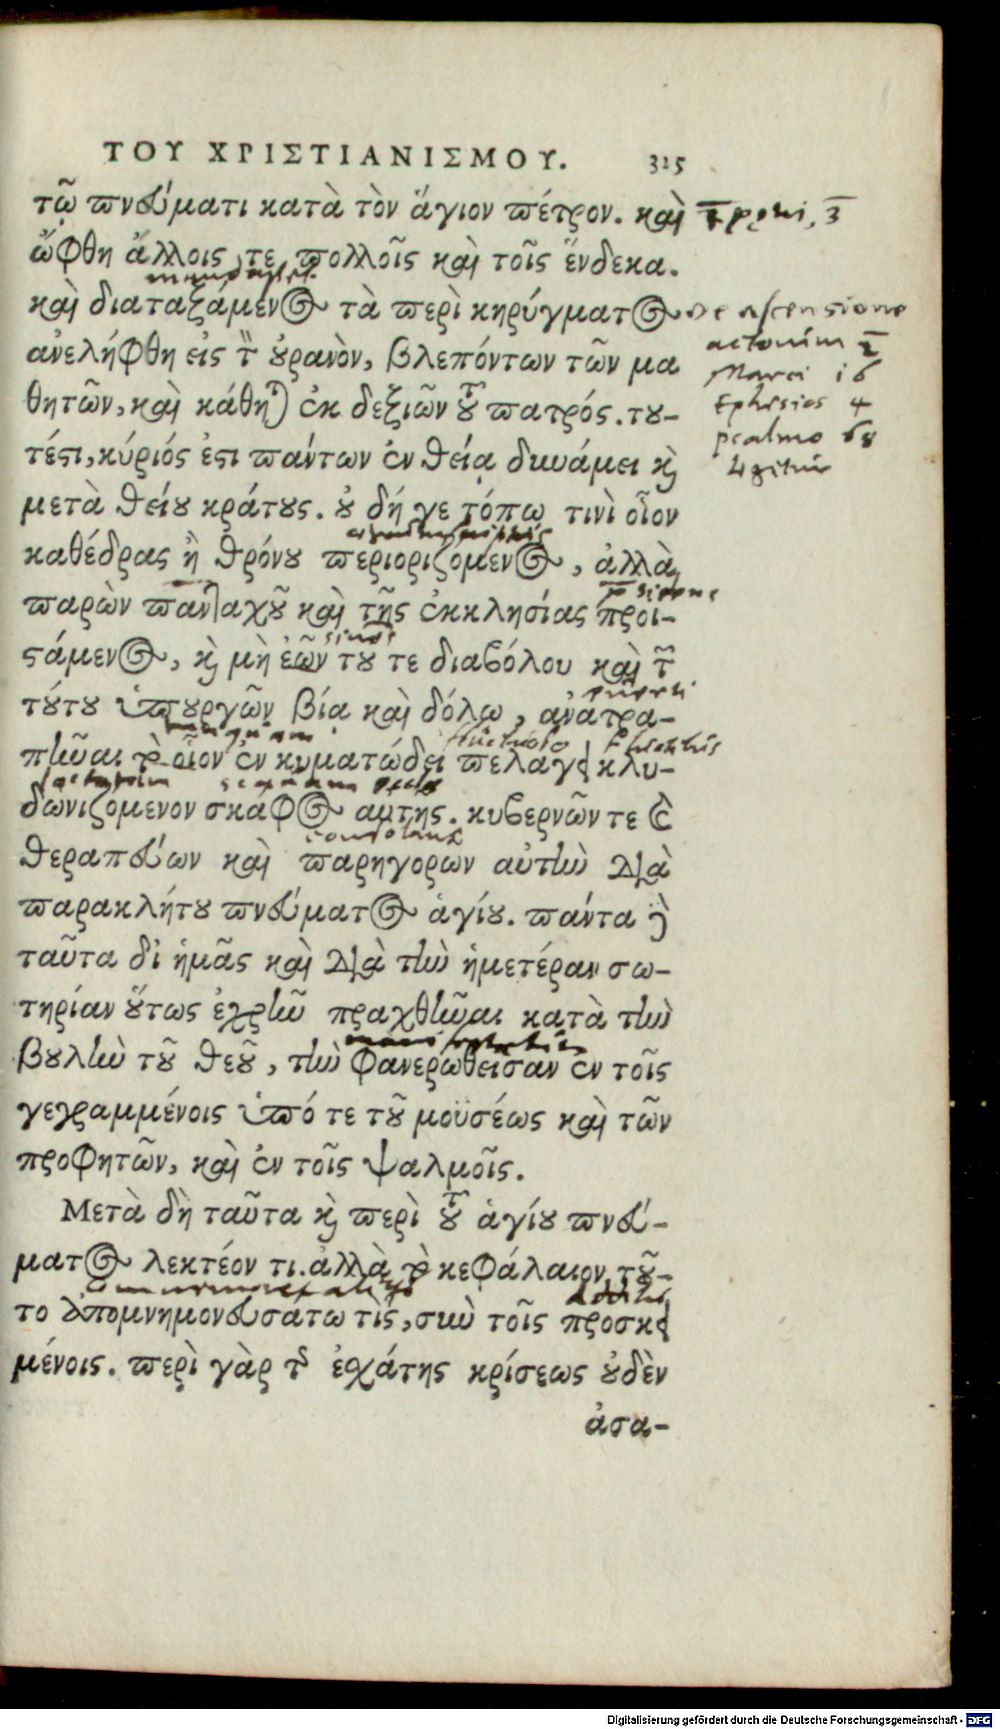 ΤΟΥ ΧΡΙΣΤΙΑΝΙΣΜΟΥ. 325
τῷ πνεύματι κατὰ τὸν ἅγιον πέτρον. καὶ
ὤφθη ἄλλοις τε πολλοῖς καὶ τοῖς ἕνδεκα.
καὶ διαταξάμενος τὰ περὶ κηρύγματος
ἀνελήφθη εἰς τὸν οὐρανὸν, βλεπόντων τῶν μα
θητῶν, καὶ κάθηται ἐκ δεξιῶν τοῦ πατρός. του-
τέστι, κύριός ἐστι πάντων ἐν θείᾳ δυνάμει καὶ
μετὰ θείου κράτους. οὐ δή γε τόπῳ τινὶ οἷον
καθέδρας ἢ θρόνου περιοριζόμενος, ἀλλὰ
παρὼν πανταχοῦ καὶ τῆς ἐκκλησίας προι-
στάμενος, καὶ μὴ ἐῶν τοῦ τε διαβόλου καὶ τῶν
τούτου ὑπουργῶν βίᾳ καὶ δόλῳ, ἀνατρα-
πῆναι τὸ οἷον ἐν κυματώδει πελάγει κλυ-
δωνιζόμενον σκάφος αὐτῆς. κυβερνῶν τε καὶ
θεραπεύων καὶ παρηγορῶν αὐτὴν διὰ
παρακλήτου πνεύματος ἁγίου. πάντα δὲ
ταῦτα δι ἡμᾶς καὶ διὰ τὴν ἡμετέραν σω-
τηρίαν οὕτως ἐχρῆν πραχθῆναι κατὰ τὴν
βουλὴν τοῦ θεοῦ, τὴν φανερωθεῖσαν ἐν τοῖς
γεγραμμένοις ὑπό τε τοῦ μοϋσέως καὶ τῶν
προφητῶν, καὶ ἐν τοῖς ψαλμοῖς.
Μετὰ δὴ ταῦτα καὶ περὶ τοῦ ἁγίου πνεύ-
ματος λεκτέον τι. ἀλλὰ τὸ κεφάλαιον τοῦ-
το ἀπομνημονευσάτω τὶς, σὺν τοῖς προσκει
μένοις. περὶ γὰρ τῆς ἐσχάτης κρίσεως οὐδὲν
ἀσα-
De ascensione
actorum 1
Marci 16
Ephesios 4
psalmo 68
fluctuoso
consolans
Digitalisierung gefördert durch die Deutsche Forschungsgemeinschaft - DFG